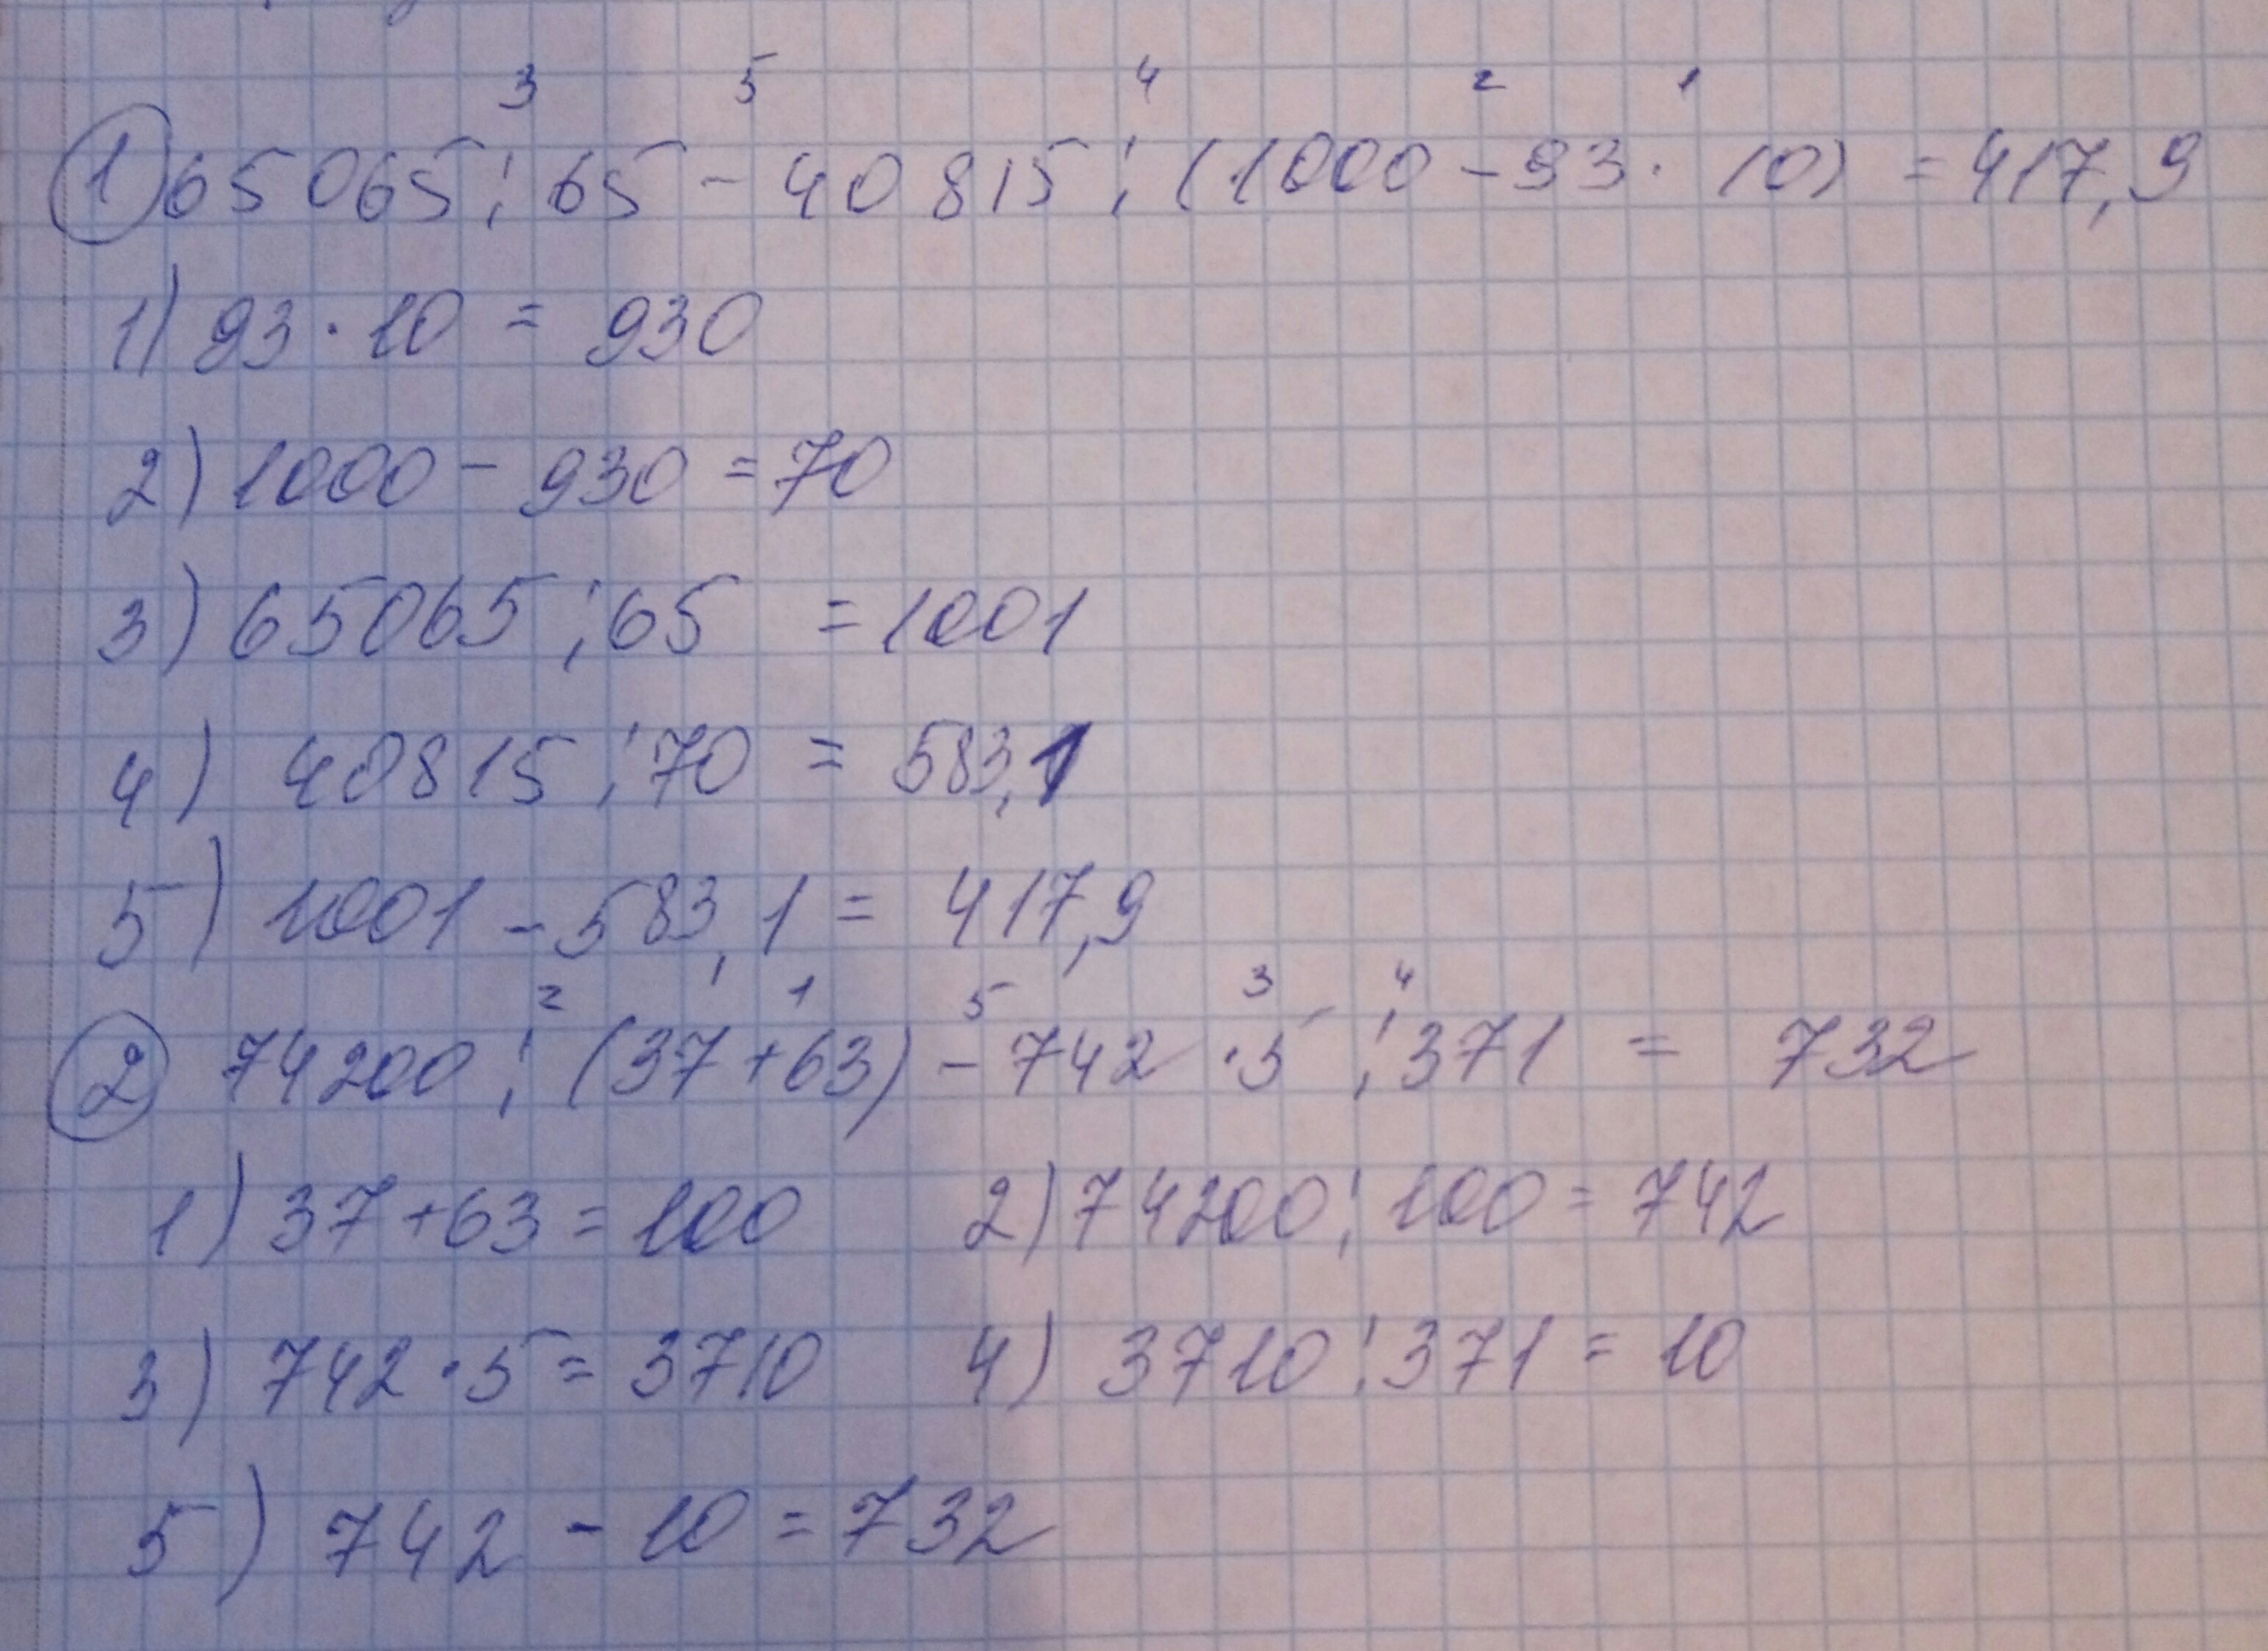 3 5 4 2 1
① 65065 : 65 - 40815 : (1000 - 93 · 10) = 417,9
1) 93 · 10 = 930
2) 1000 - 930 = 70
3) 65065 : 65 = 1001
4) 40815 : 70 = 583,1
5) 1001 - 583,1 = 417,9
2 1 5 3 4
② 74200 : (37 + 63) - 742 · 5 : 371 = 732
1) 37 + 63 = 100 2) 74200 : 100 = 742
3) 742 · 5 = 3710 4) 3710 : 371 = 10
5) 742 - 10 = 732